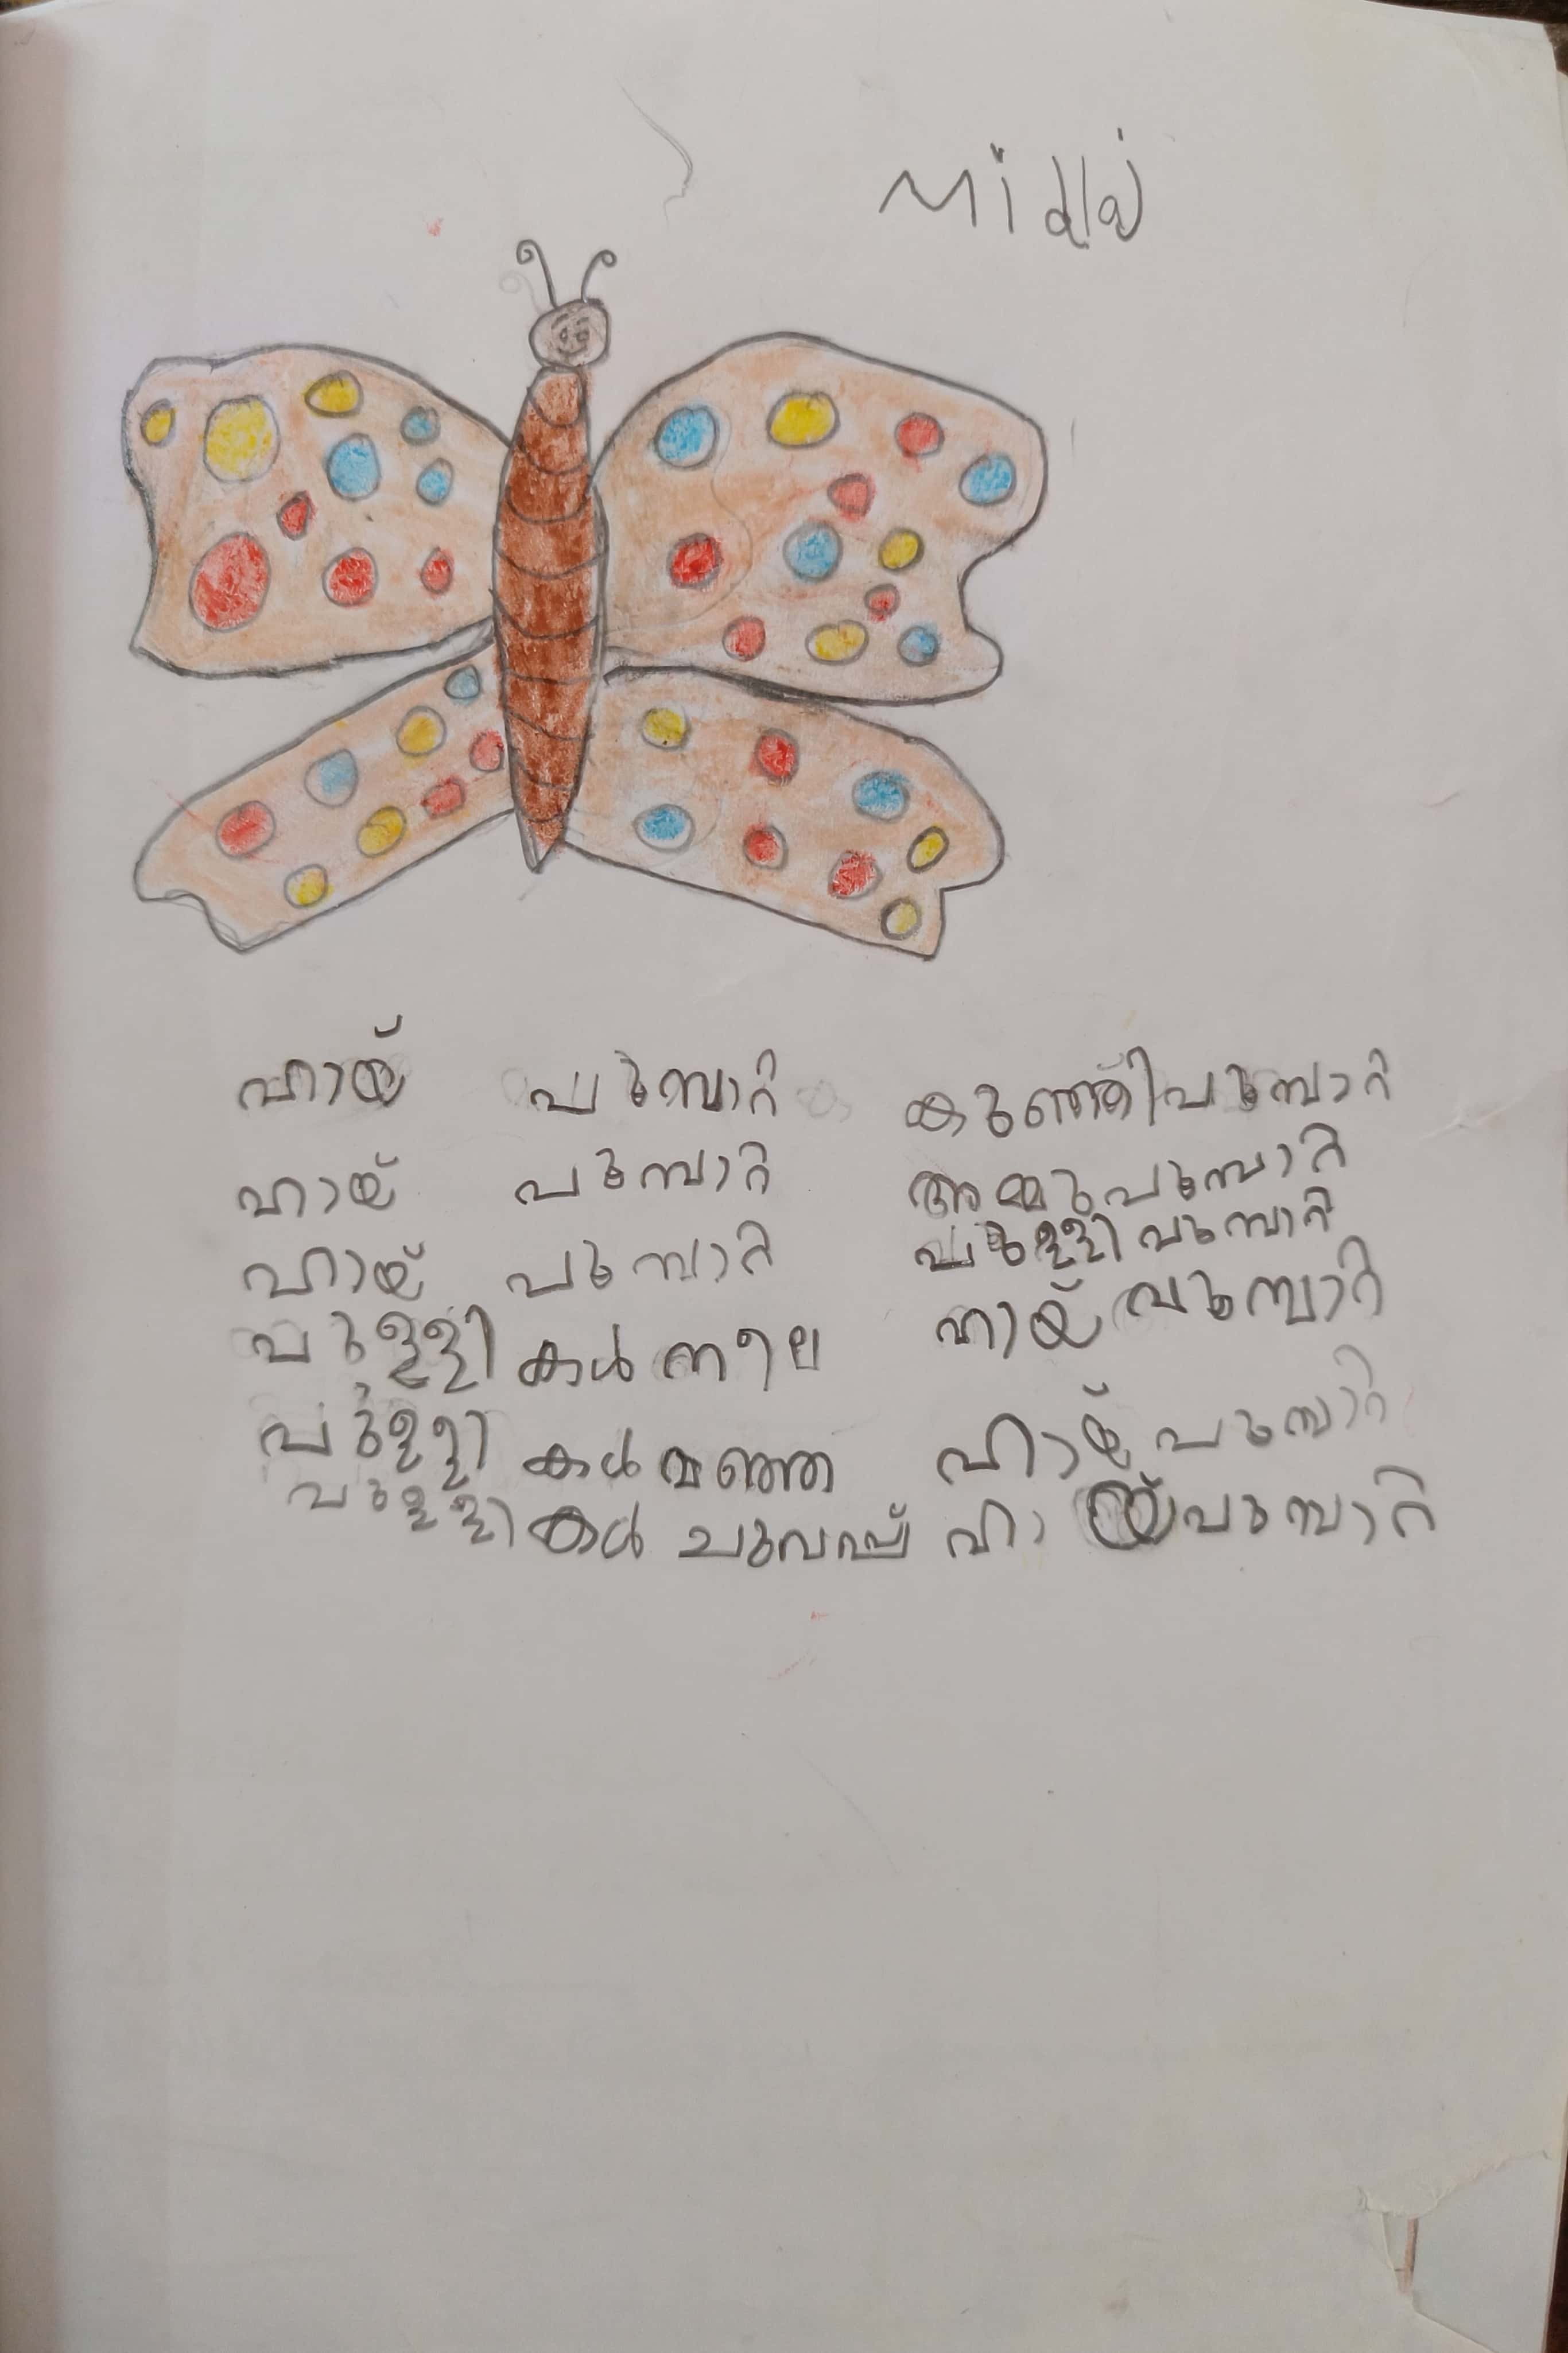 ഹായ് പുമ്പാറ്റ കുഞ്ഞിപുമ്പാറ്റ
ഹായ് പുമ്പാറ്റ അമ്മുപുമ്പാറ്റ
ഹായ് പുമ്പാറ്റ പുള്ളിപുമ്പാറ്റ
പുള്ളികൾ നീല ഹായ് പുമ്പാറ്റ
പുള്ളികൾ മഞ്ഞ ഹായ് പുമ്പാറ്റ
പുള്ളികൾ ചുവപ്പ് ഹായ് പുമ്പാറ്റ